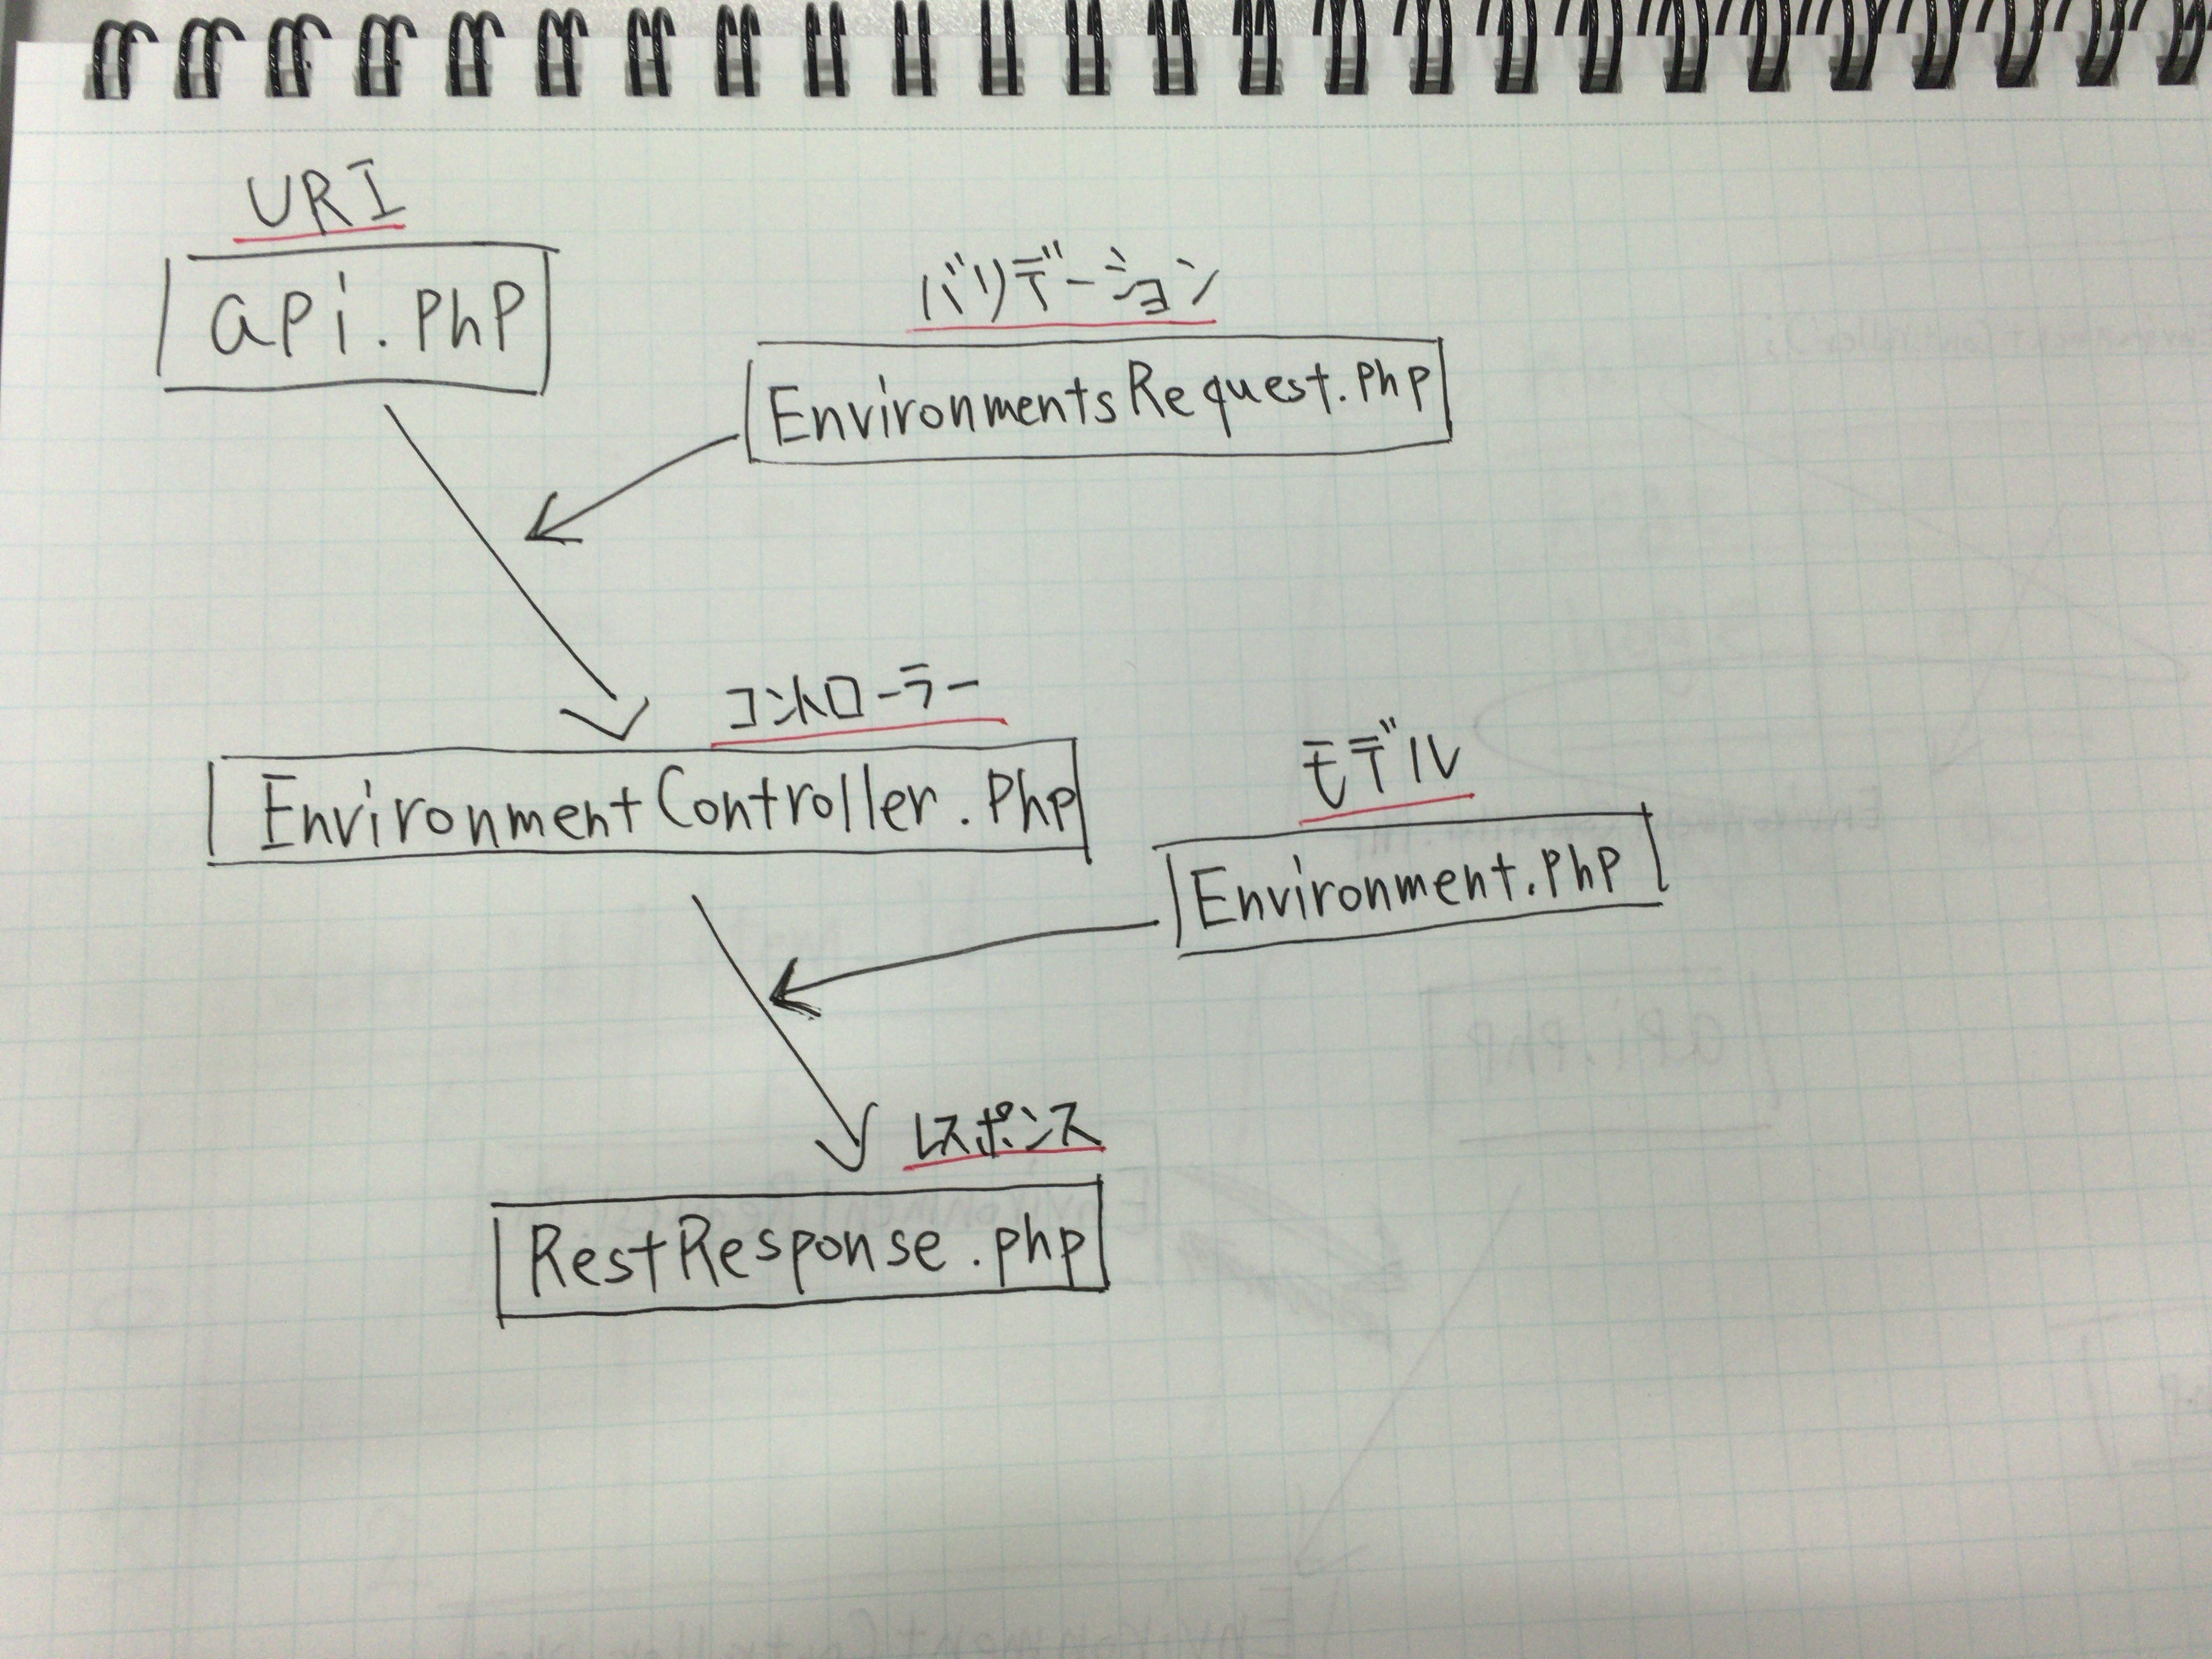 URI
api.php
バリデーション
EnvironmentsRequest.php
コントローラー
EnvironmentController.php
モデル
Environment.php
レスポンス
RestResponse.php